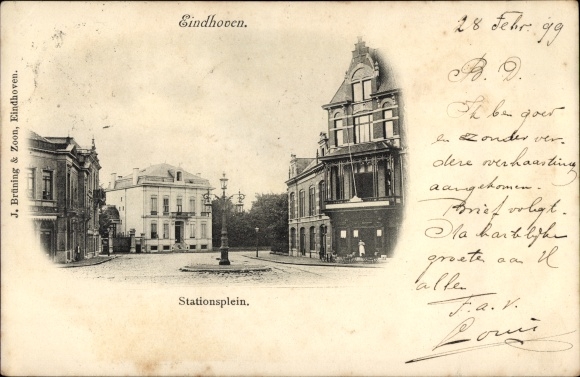 Eindhoven.
J. Brüning & Zoon, Eindhoven.
Stationsplein.
28 Febr. 99
B. D.
Ik ben goed
en zonder ver-
dere overhaasting
aangekomen.
Brief volgt.
Na hartelijke
groeten aan U
allen
T. a. v.
Louis